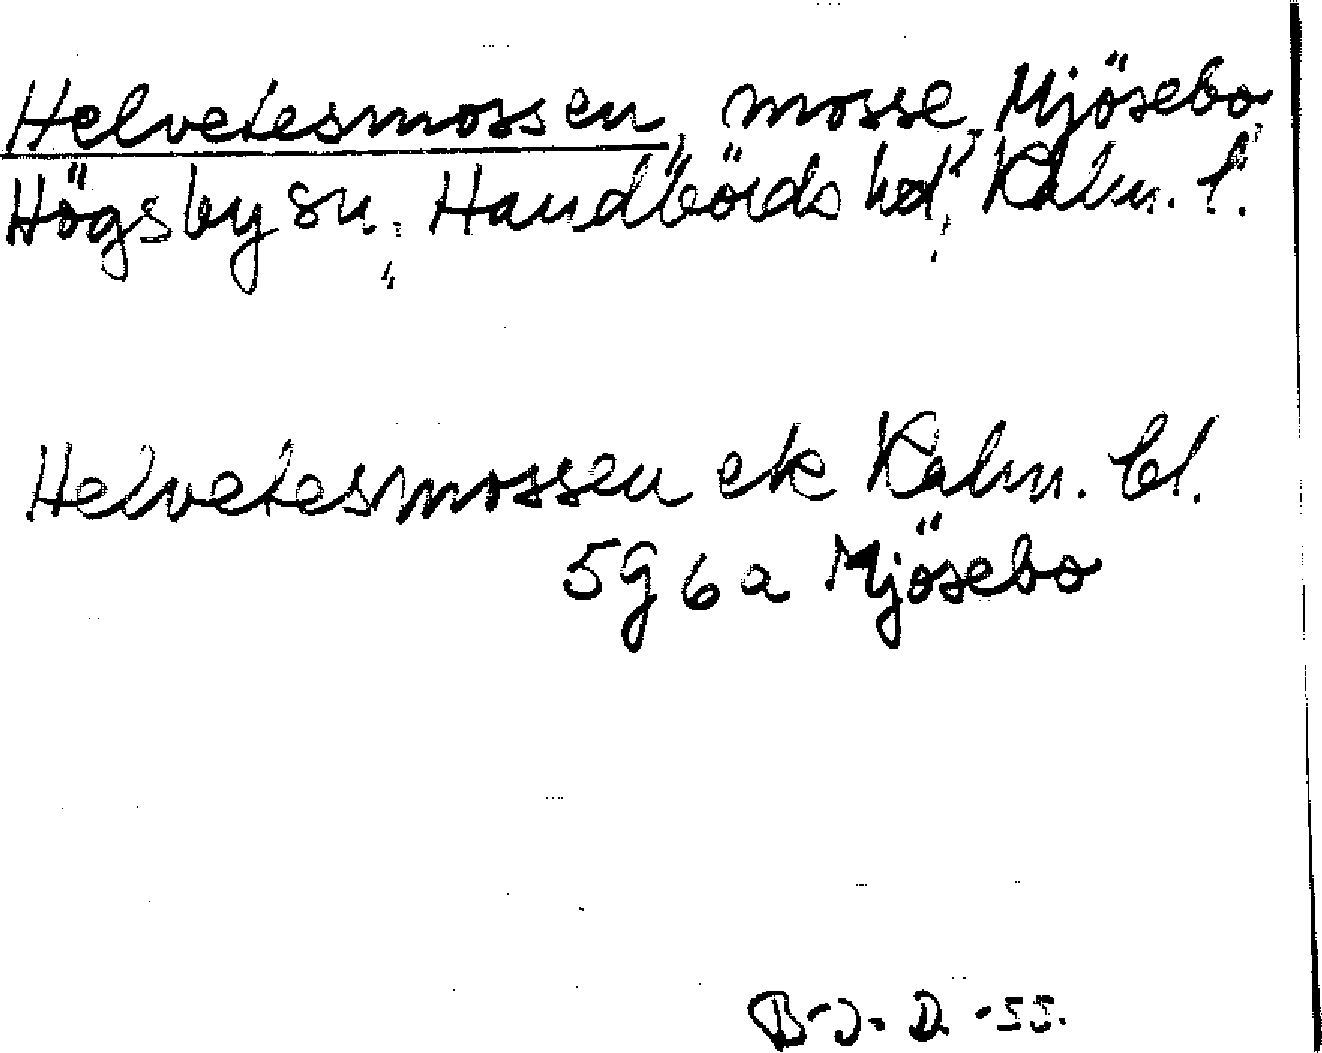 Helvetesmossen, mosse, Mjösebo,
Högsby sn, Handbörds hd, Kalm. l.
Helvetesmossen ek Kalm. bl.
5g 6a Mjösebo
B-J. D. -55.